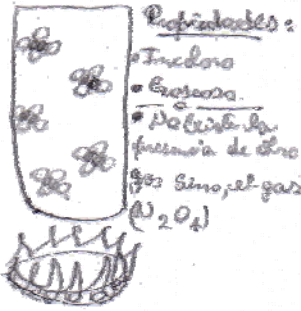 Propiedades:
• Incoloro
• Gaseoso.
• No Existe la
presencia de otro
gas sino, el gas
(N2O4)